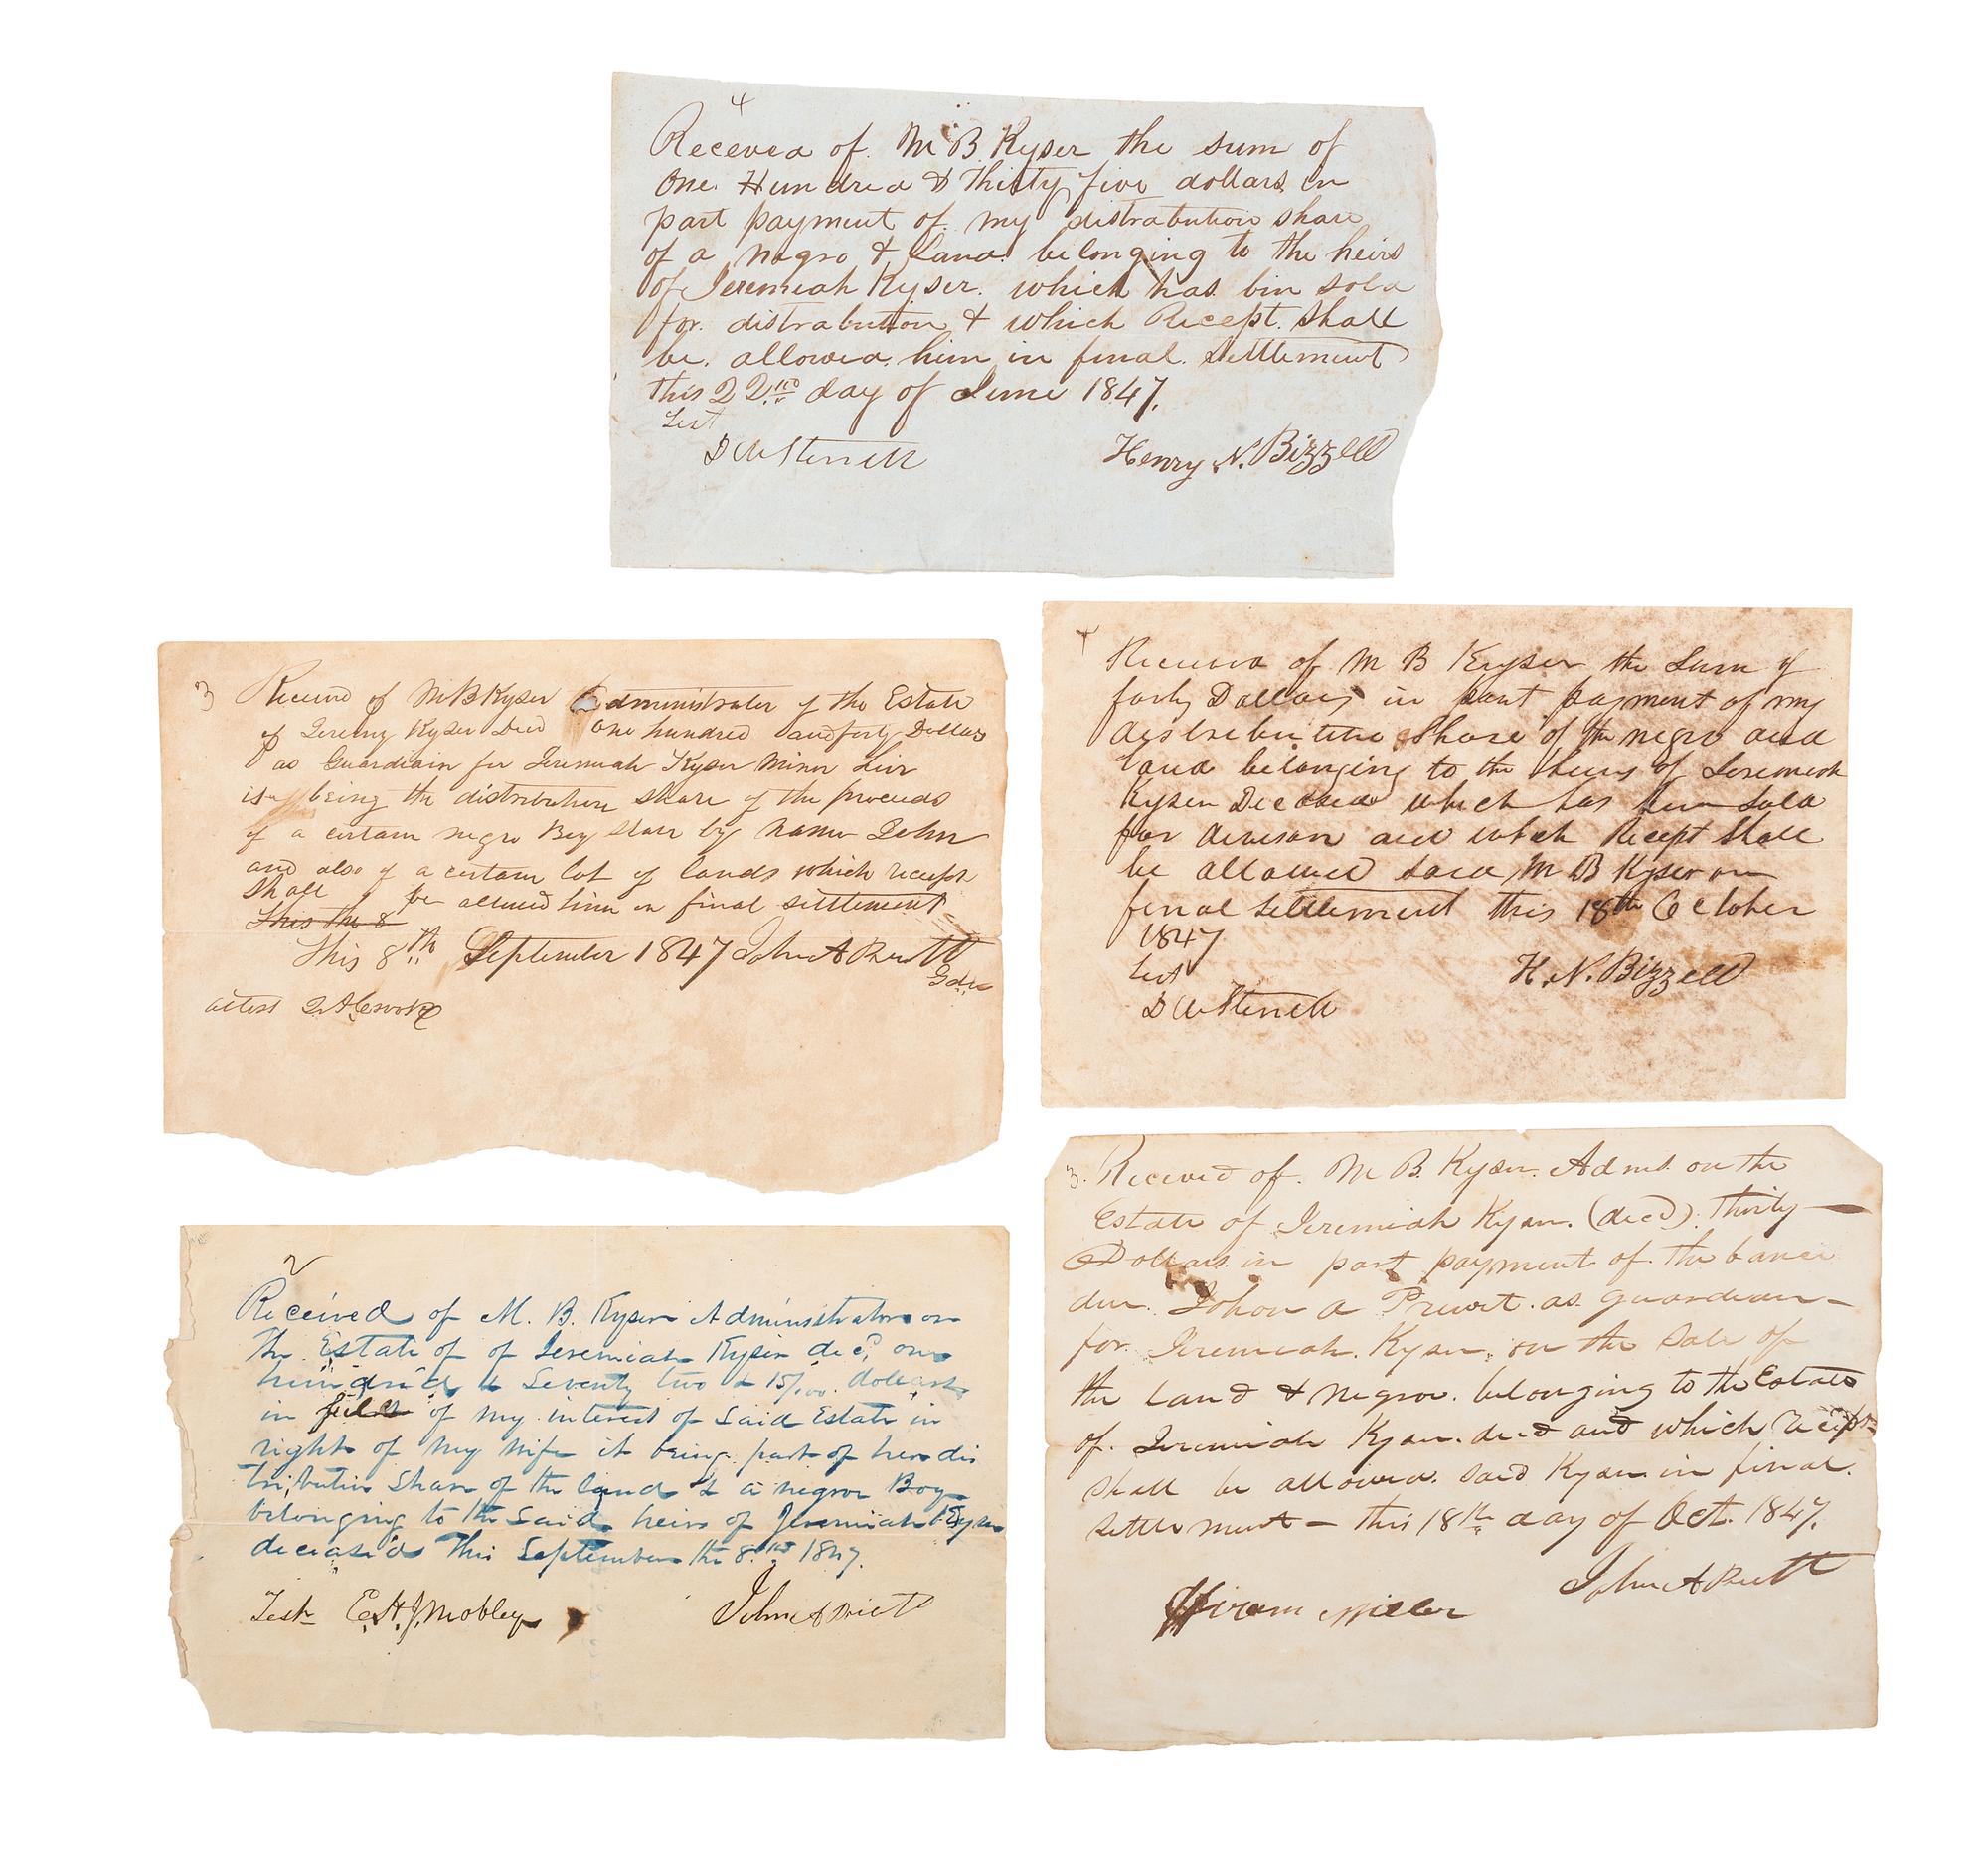 4
Receved of M B Kyser the sum of
One Hundred & Thirty five dollars in
part payment of my distrabution share
of a negro & Land belonging to the heirs
of Jeremiah Kyser which has bin sold
for distrabution & which Recept shall
be allowed him in final settlement
this 22nd day of June 1847.
Test
D W Sterrett Henry N. Bizzell
3
Received of M B Kyser Administrator of the Estate
of Jeremy Kyser Decd one hundred and forty Dollars
as Guardian for Jeremiah Kyser Minor heir
it being the distributive share of the proceeds
of a certain negro Boy Slave by name John
and also of a certain lot of lands which receipt
shall be allowed him in final settlement
This the 8
This 8th September 1847 John A Pruitt
Gdn
attest
4
Received of M B Kyser the Sum of
forty Dollars in part payment of my
distributive Share of the negro and
land belonging to the heirs of Jeremiah
Kyser Deceased which has been Sold
for division and which Recept Shall
be allowed said M B Kyser on
final settlement this 18th October
1847
Test
D W Sterrett H. N. Bizzell
2
Received of M. B. Kyser Administrator on
the Estate of of Jeremiah Kyser decd, one
hundred & Seventy two & 15/100 dollars
in full of my interest of Said Estate in
right of my wife it being part of her dis
tributive Share of the land & a negro Boy
belonging to the Said heirs of Jeremiah Kyser
deceased This September the 8th 1847.
Test E. H. J. Mobley John A Pruitt
3.
Received of M B. Kyser Admr. on the
Estate of Jeremiah Kyser. (decd) thirty
Dollars in part payment of the
due John a Pruit as guardian
for Jeremiah Kyser, on the Sale of
the Land & negroe belonging to the Estate
of Jeremiah Kyser decd and which recept
shall be allowed said Kyser in final
settlement - this 18th day of Oct. 1847.
Hiram Miller John A Pruitt